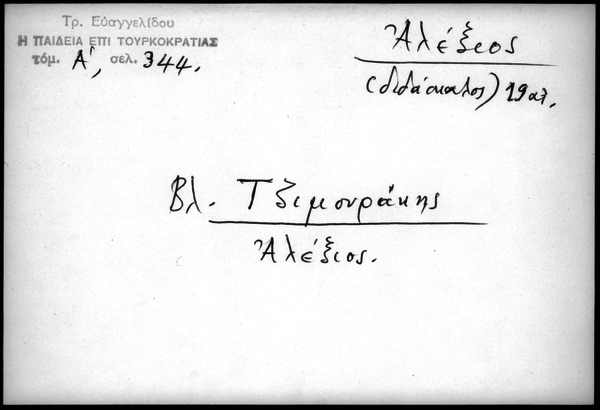 Τρ. Εὐαγγελίδου
Η ΠΑΙΔΕΙΑ ΕΠΙ ΤΟΥΡΚΟΚΡΑΤΙΑΣ
τόμ. Α', σελ. 344.
Ἀλέξιος
(διδάσκαλος) 19 αἰ.
Βλ. Τζιμουράκης
Ἀλέξιος.